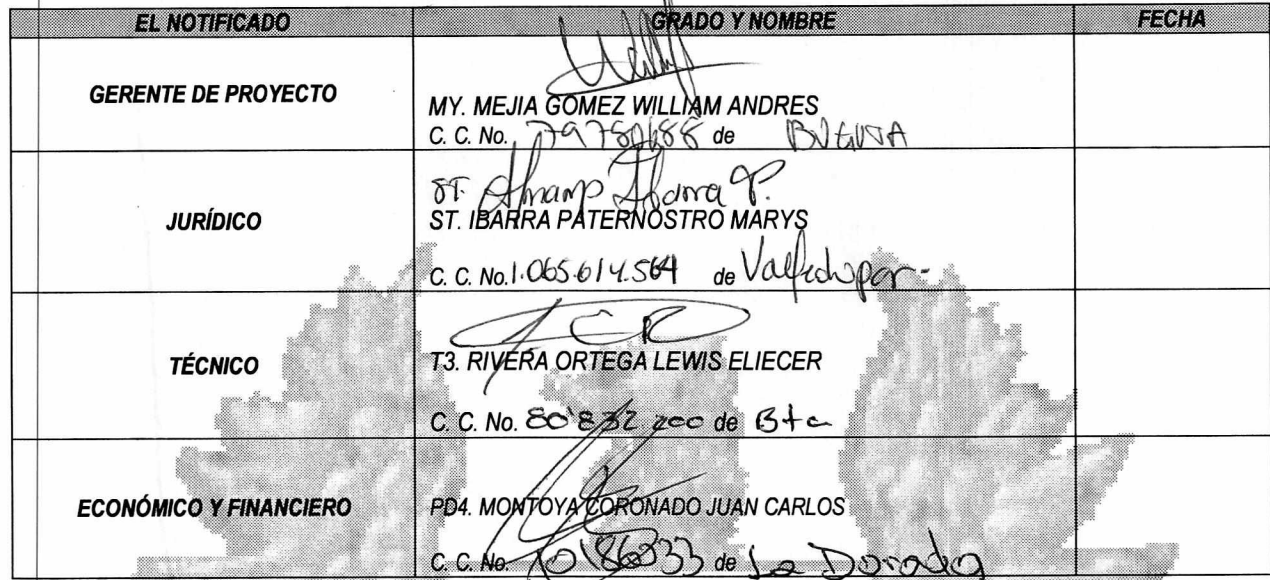 EL NOTIFICADO GRADO Y NOMBRE FECHA
GERENTE DE PROYECTO
MY. MEJIA GOMEZ WILLIAM ANDRES
C. C. No. de
JURÍDICO
ST. Ibarra P.
ST. IBARRA PATERNOSTRO MARYS
C. C. No. 1.065.614.564 de Valledupar-
TÉCNICO
T3. RIVERA ORTEGA LEWIS ELIECER
C. C. No. 80'832 200 de Bta
ECONÓMICO Y FINANCIERO
PD4. MONTOYA CORONADO JUAN CARLOS
C. C. No. de La Dorada